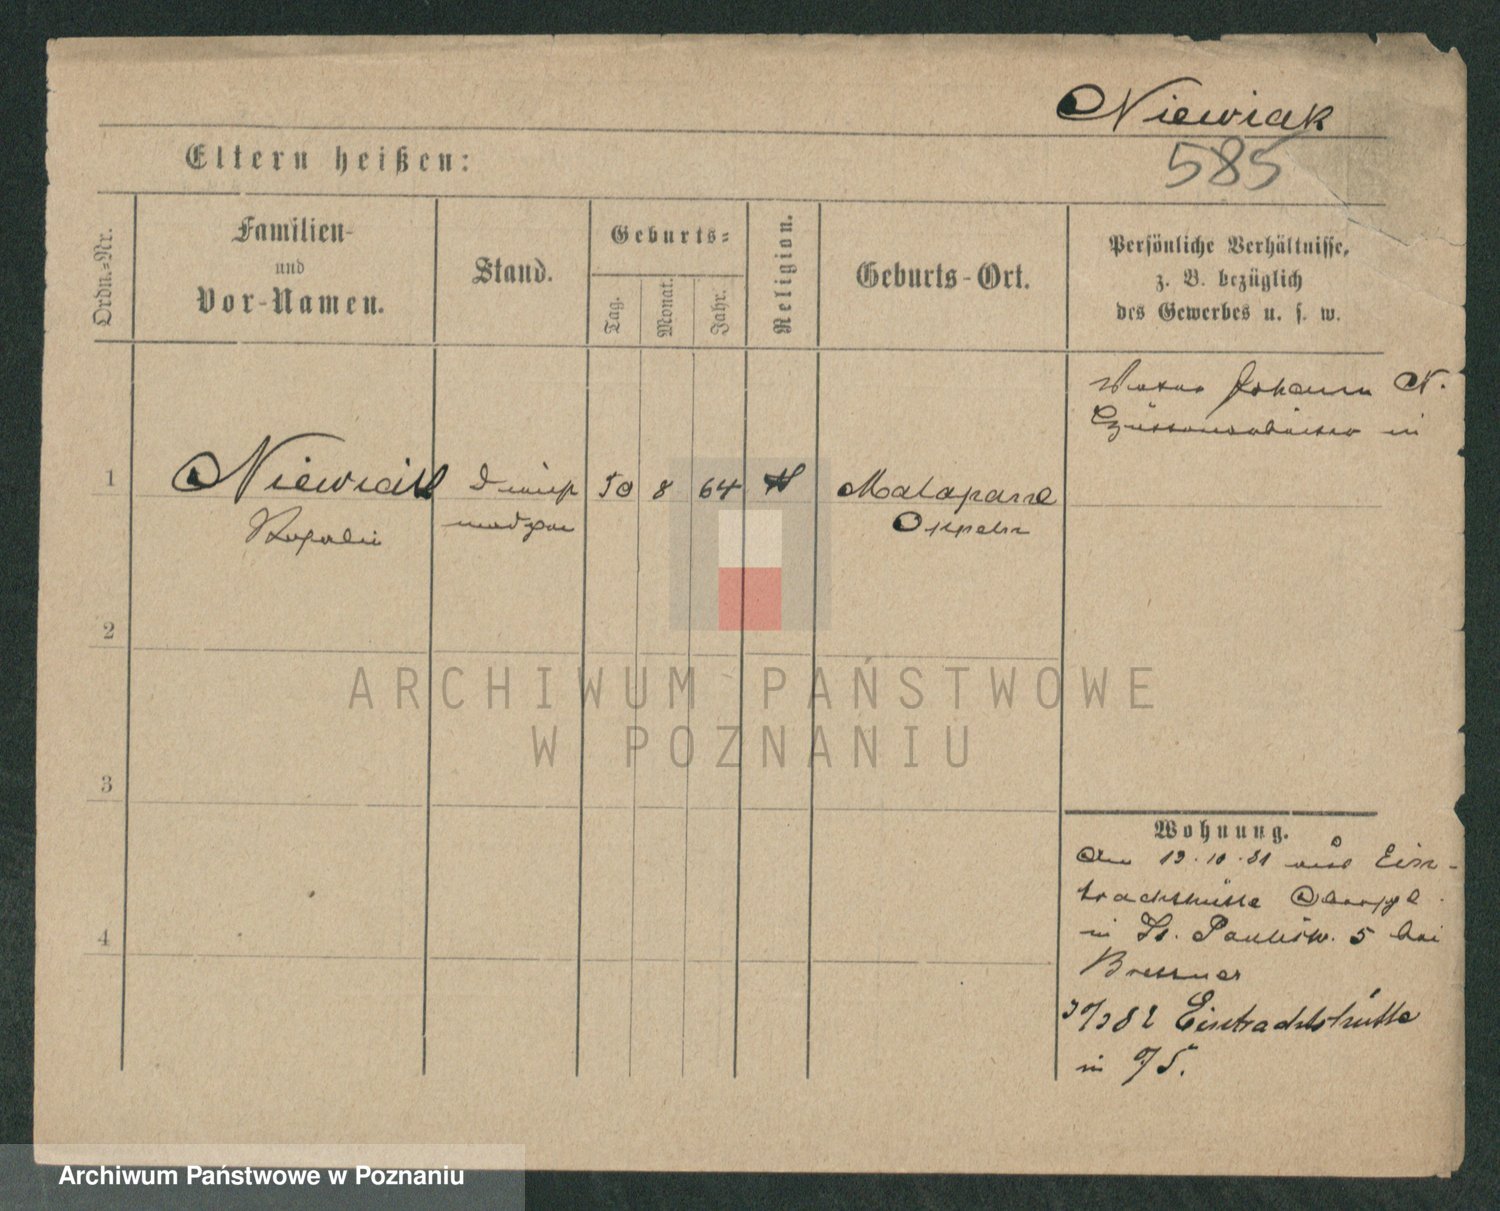 Niewiak
585
Eltern heißen:
Ordn.-Nr.
Familien-
und
Vor-Namen.
Stand.
Geburts-
Tag.
Monat.
Jahr.
Religion.
Geburts-Ort.
Persönliche Verhältnisse,
z. B. bezüglich
des Gewerbes u. s. w.
Vater Johann N.
in
1
Niewiak
Dienst
mädchen
8
64
Malapane
Oppeln
2
3
4
Wohnung.
Am 19.10.81 aus Ein-
trachthütte
in St. Paulikw. 5 bei
Eintrachtshütte
in
ARCHIWUM PAŃSTWOWE
W POZNANIU
Archiwum Państwowe w Poznaniu